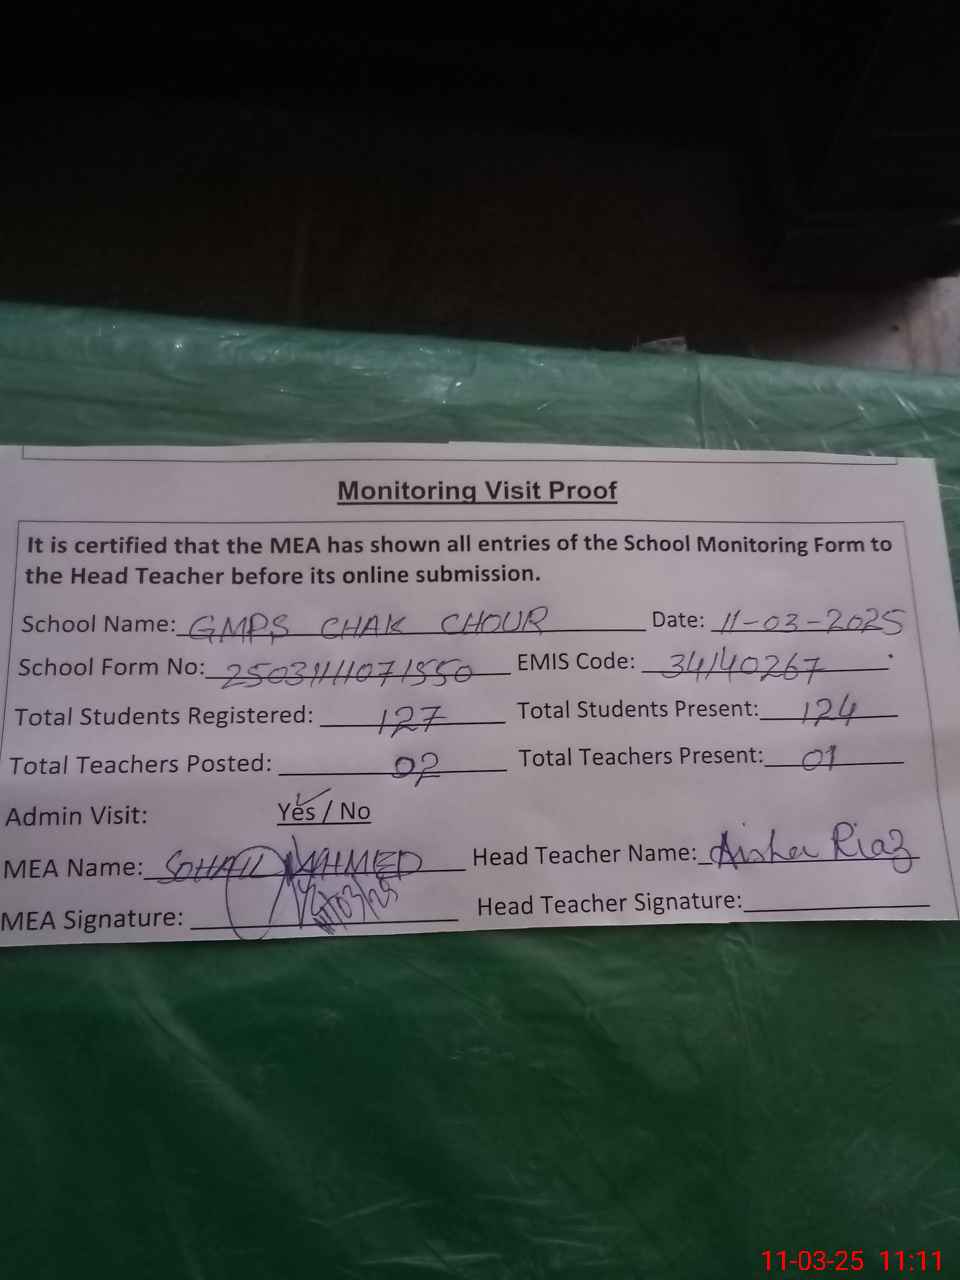 Monitoring Visit Proof
It is certified that the MEA has shown all entries of the School Monitoring Form to
the Head Teacher before its online submission.
School Name: GMPS CHAK CHOUR Date: 11-03-2025
School Form No: 25031111071550 EMIS Code: 34140267
Total Students Registered: 127 Total Students Present: 124
Total Teachers Posted: 02 Total Teachers Present: 01
Admin Visit: Yes / No
MEA Name: SOHAIL AHMED Head Teacher Name: Aisha Riaz
MEA Signature: 11/03/25 Head Teacher Signature:
11-03-25 11:11